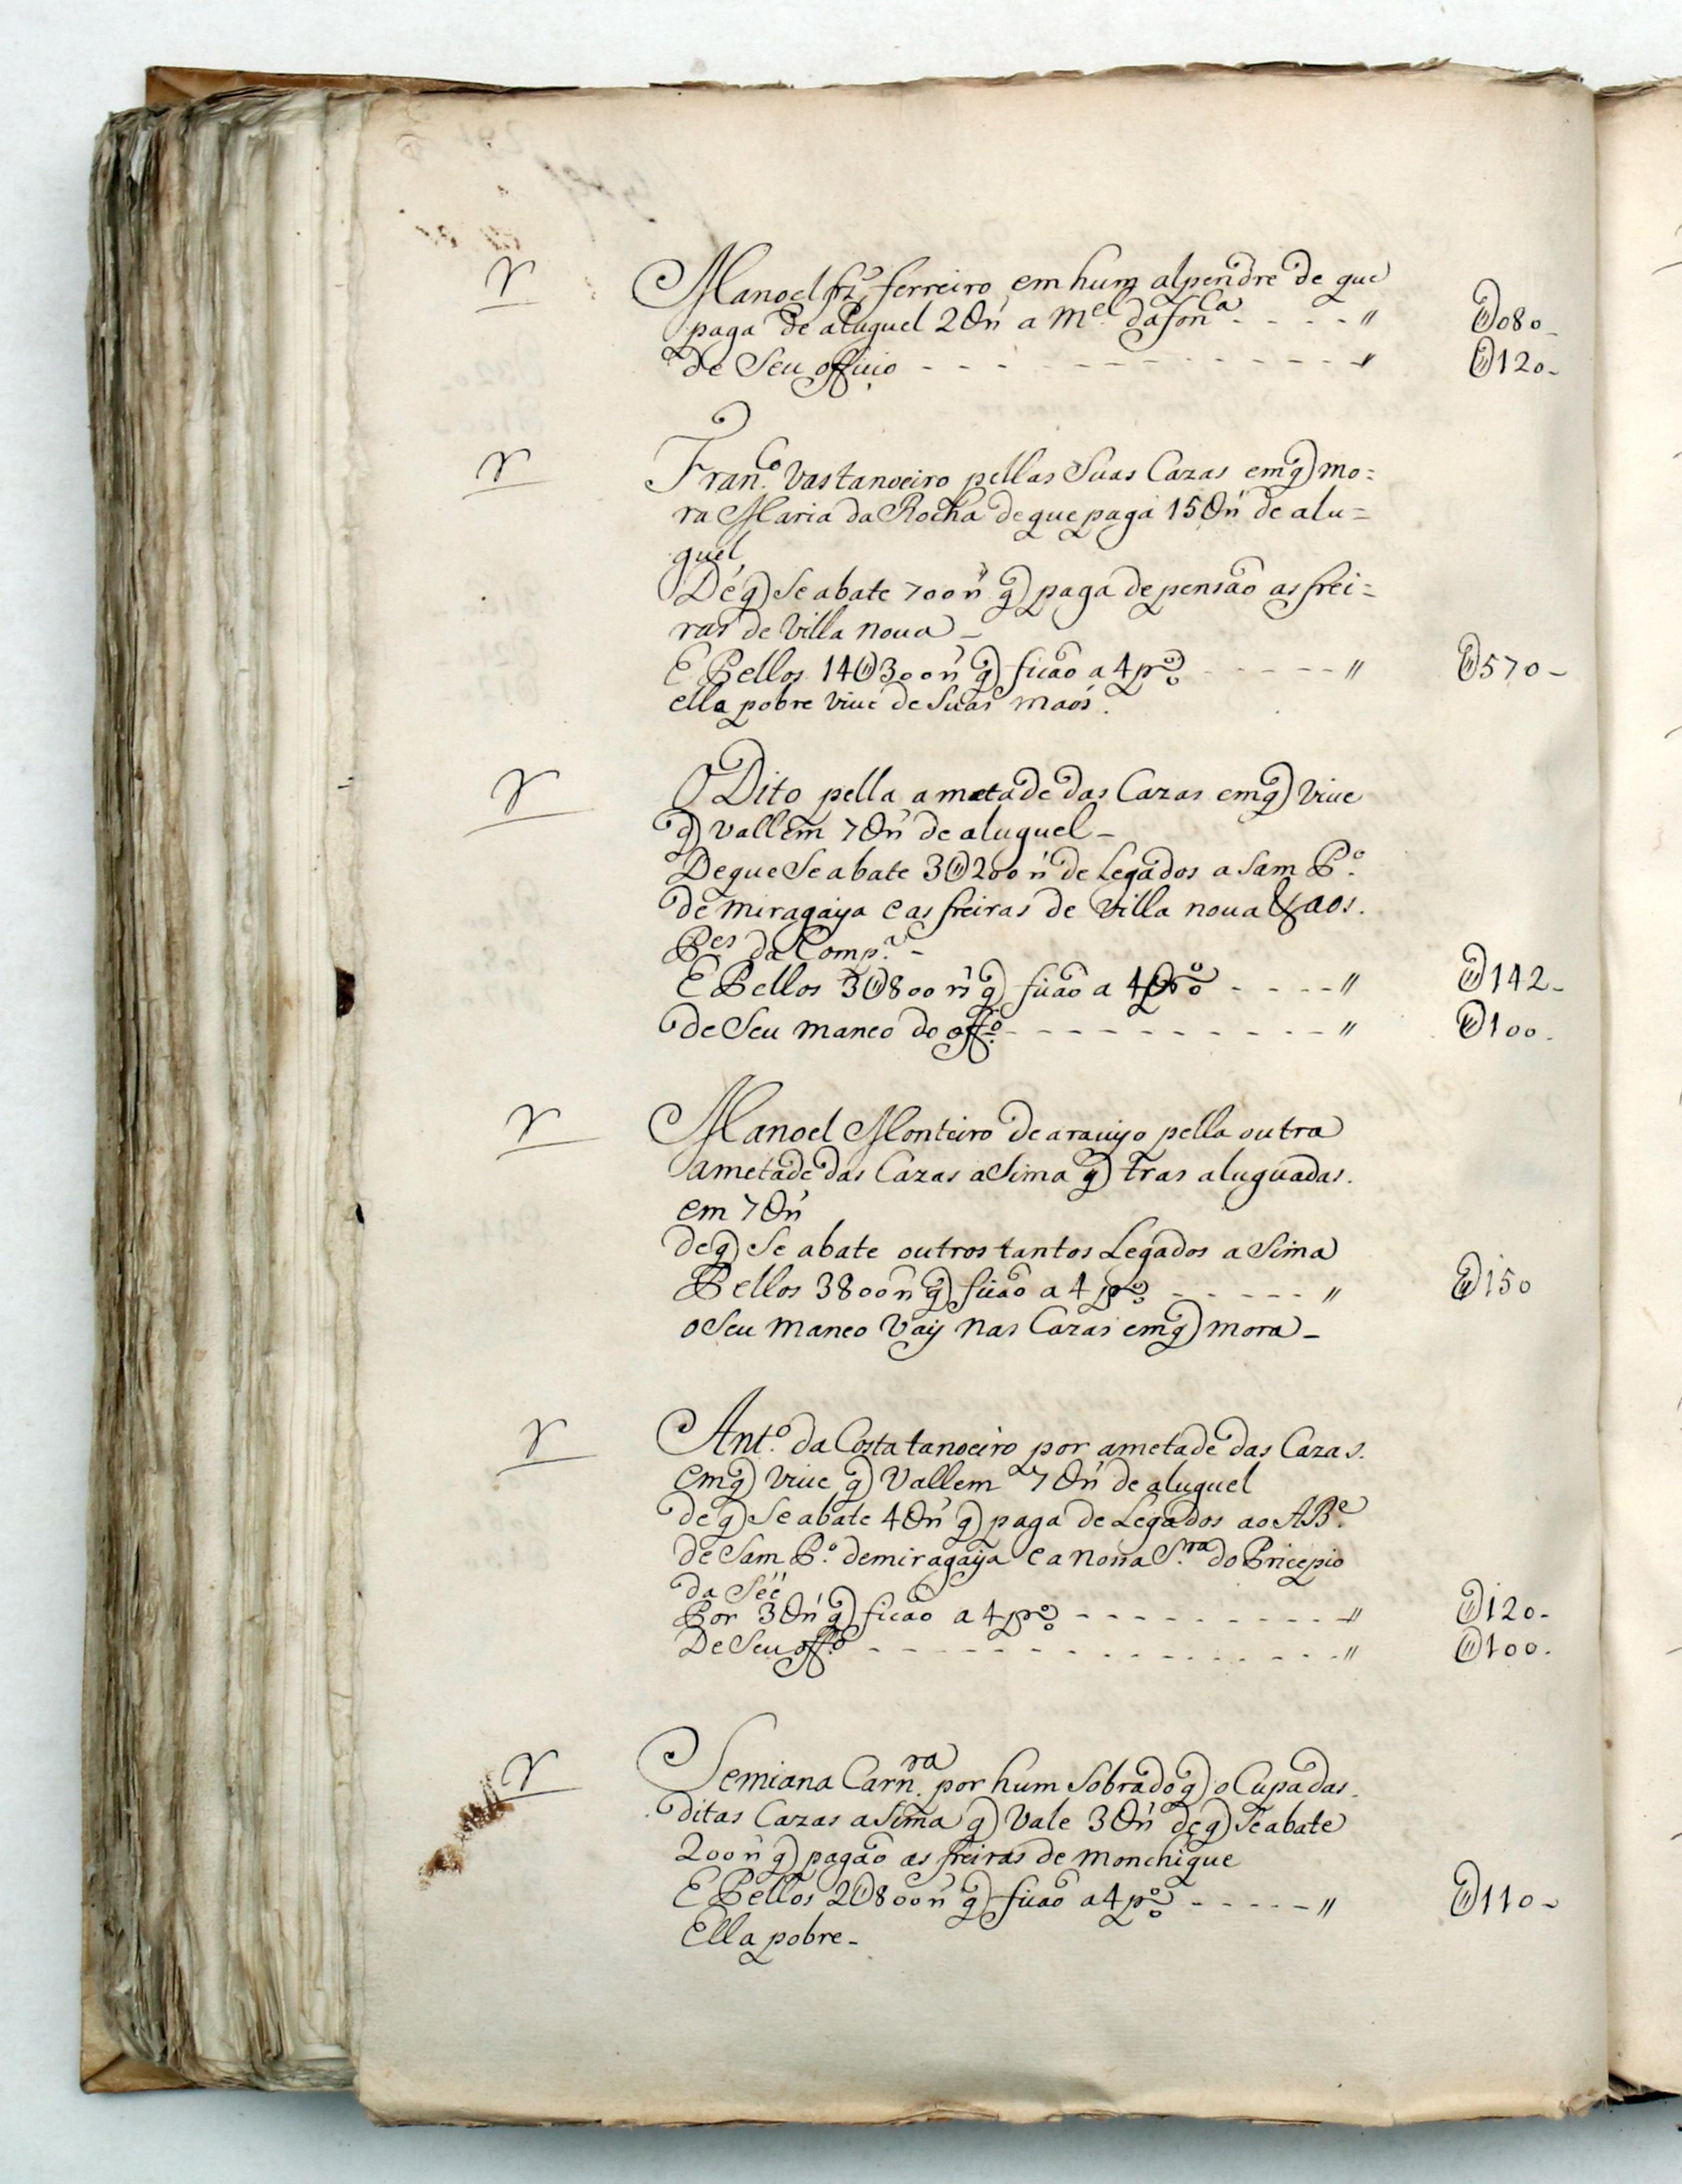 Manoel frz ferreiro em hum alpendre de que
paga de aluguel 2U rs a Mel da fonca - - - - " U080
de Seu officio - - - - - - - - - - " U120
Franco Vas tanoeiro pellas Suas Cazas em q mo=
ra Maria da Rocha de que paga 15U rs de alu=
guel
De q Se abate 700 rs q paga de pensão as frei=
ras de Villa noua -
E Pellos 14U300 rs q ficão a 4 p% - - - - - " U570
ella pobre viue de Suas maos.
O Dito pella ametade das Cazas em q viue
q vallem 7U rs de aluguel -
De que Se abate 3U200 rs de Legados a Sam Po
de miragaya e as freiras de Villa noua & aos
Pes da Compa -
E Pellos 3U800 rs q ficão a 4 p% - - - - " U142
de Seu maneo do offo - - - - - - - - - - " U100
Manoel Monteiro de araujo pella outra
ametade das Cazas aSima q tras aluguadas.
em 7U rs
de q Se abate outros tantos Legados a Sima
Pellos 3800 rs q ficão a 4 p% - - - - - " U150
o Seu maneo Vay nas Cazas em q mora -
Anto da Costa tanoeiro por ametade das Cazas.
em q viue q Vallem 7U rs de aluguel
de q Se abate 4U rs q paga de Legados ao ABe
de Sam Po de miragaya e a nossa Sra do Pricepio
da Séé
Por 3U rs q ficão a 4 p% - - - - - - - - - " U120
De Seu offo - - - - - - - - - - - - - - " U100
Semiana Carnra por hum Sobrado q oCupa das
ditas Cazas aSima q Vale 3U rs de q Se abate
200 rs q pagão as freiras de monchique
E Pellos 2U800 rs q ficão a 4 p% - - - - - " U110
Ella pobre -